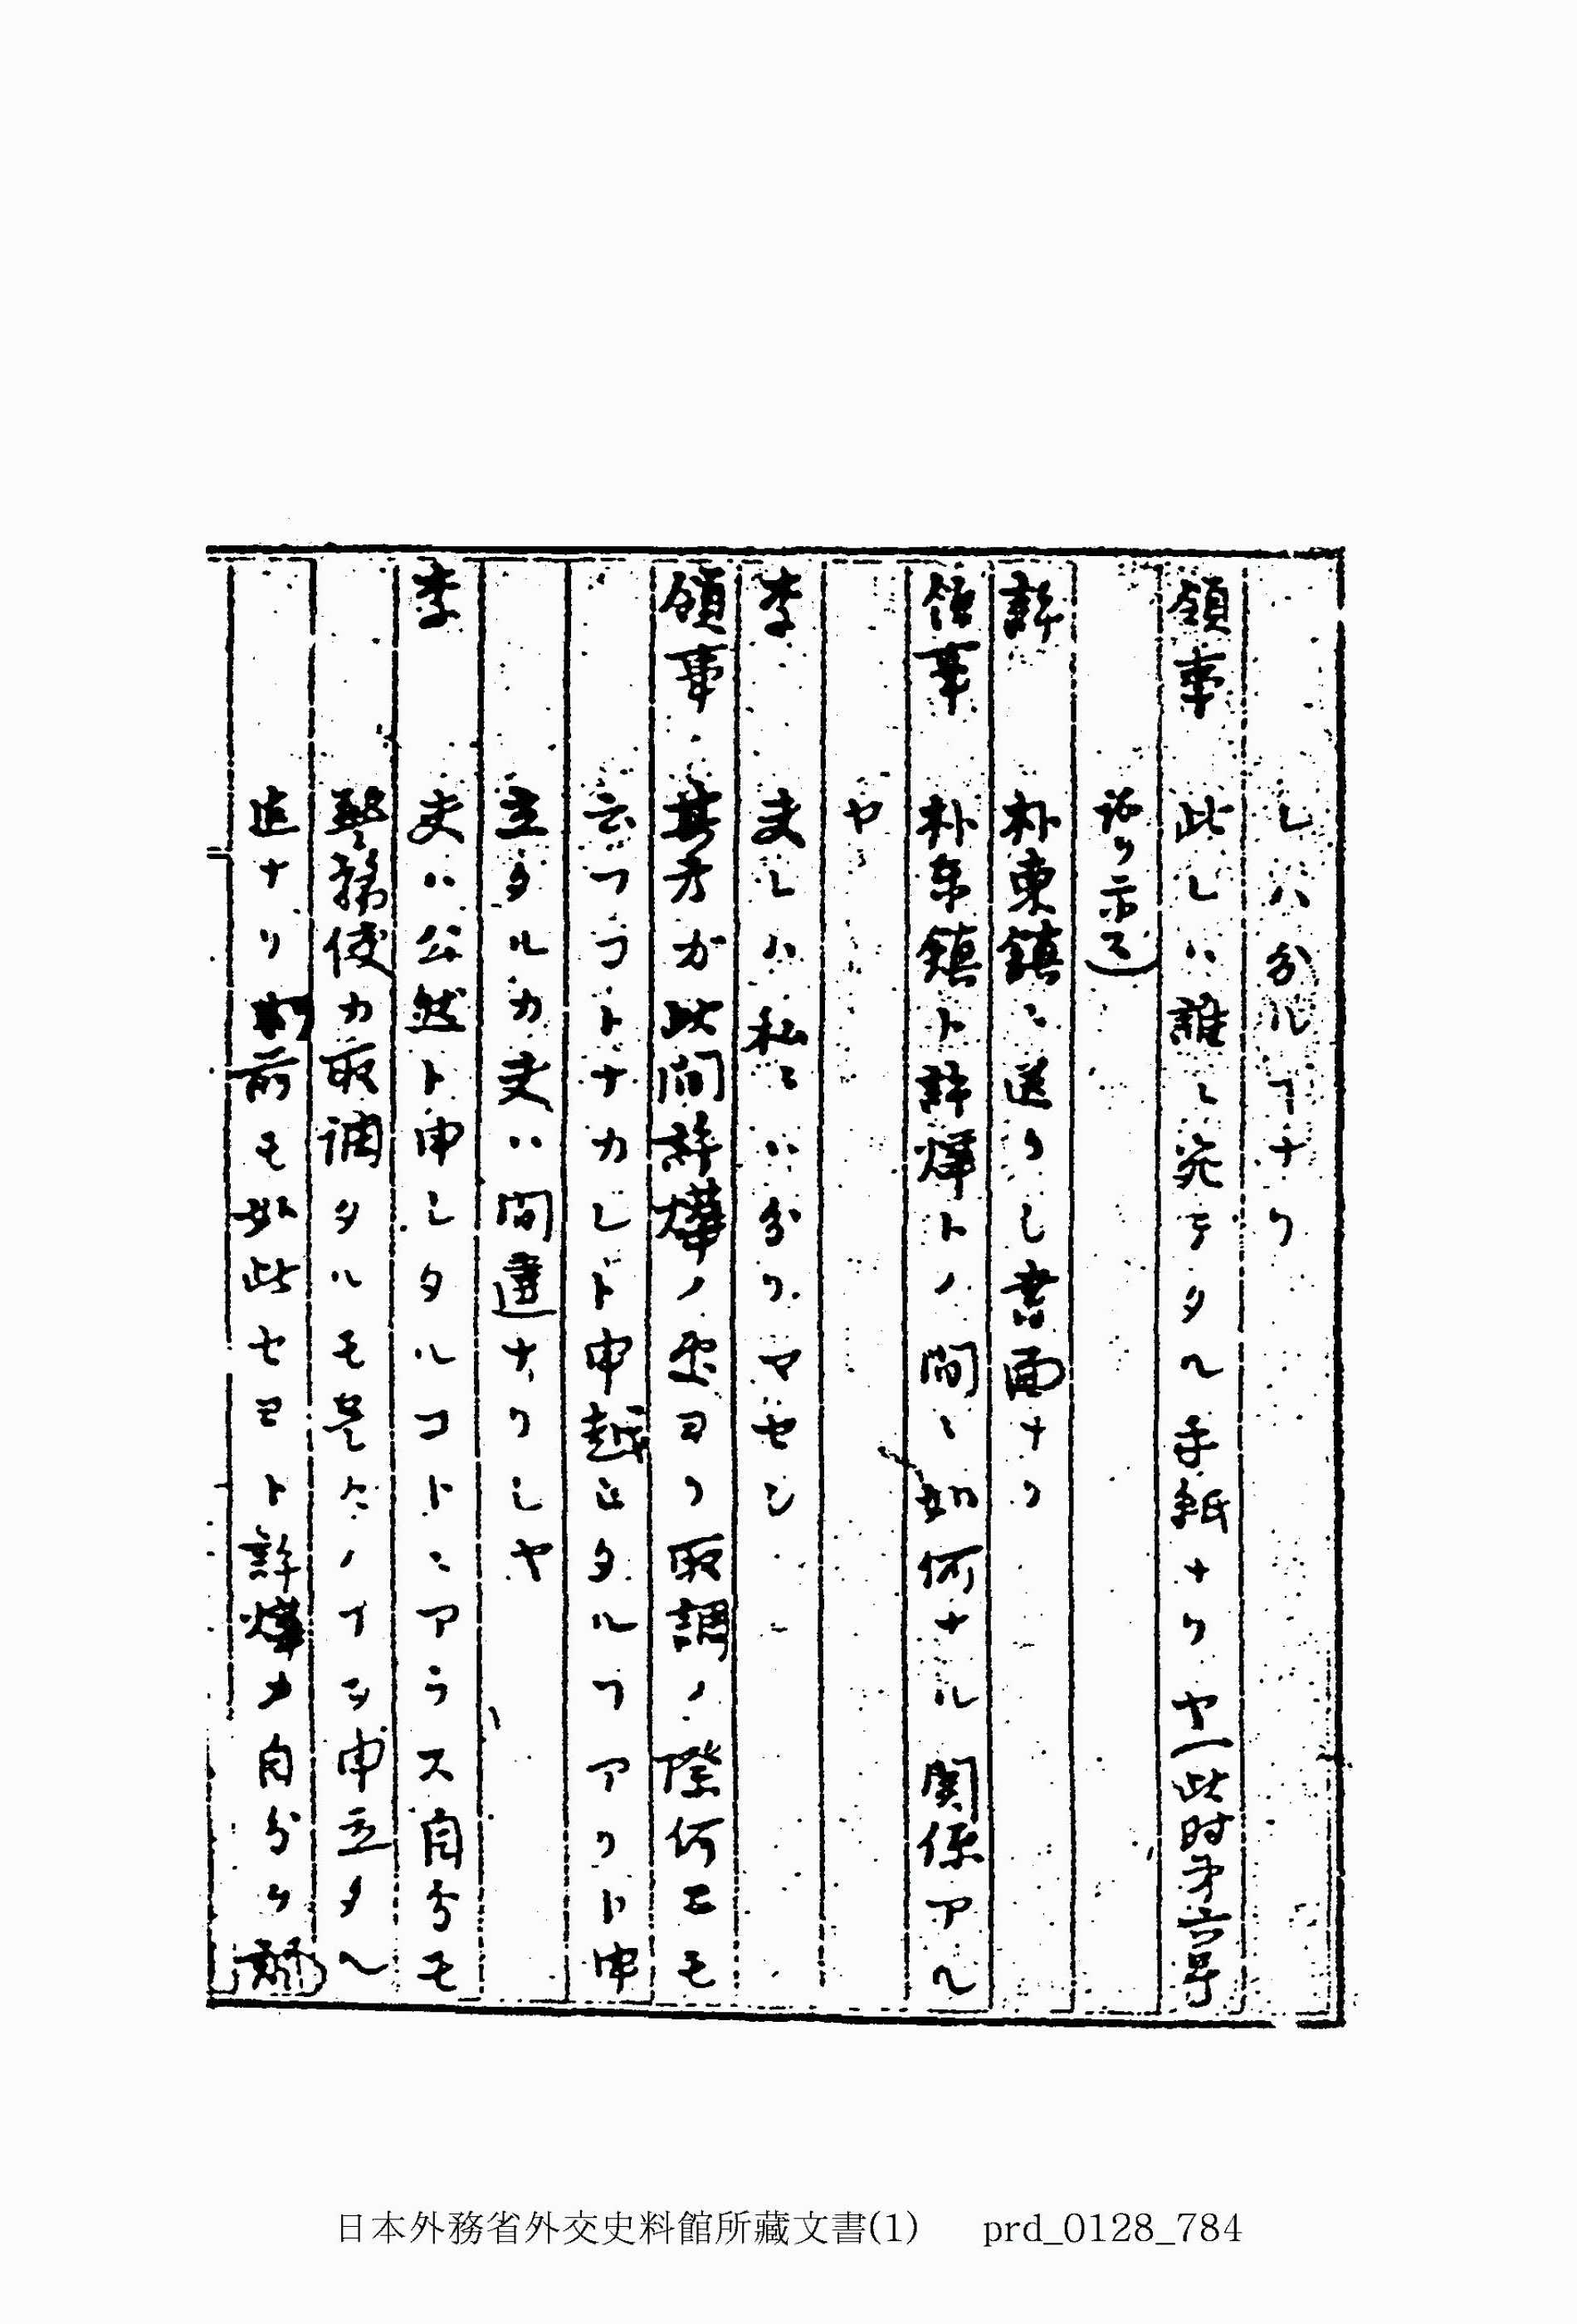 レハ分ルヿナリ
領事 此レハ誰ニ宛テタル手紙ナリヤ(此時第六号
ヲ示ス)
許 朴東鎮ニ送リシ書面ナリ
領事 朴東鎮ト許煒トノ間ニ如何ナル関係アル
ヤ
李 夫レハ私ニハ分リマセン
領事 其方ガ此間許煒ノ処ヨリ取調ノ際何エモ
云フコトナカレド申越シタルヿアリト申
立タルカ夫ハ間違ナリシヤ
李 夫ハ公然ト申シタルコトニアラス自分モ
警務使カ取調タルモ是々ノヿヲ申立タル
迄ナリ前モ如此セヨト許煒カ自分ニ
日本外務省外交史料館所藏文書(1) prd_0128_784